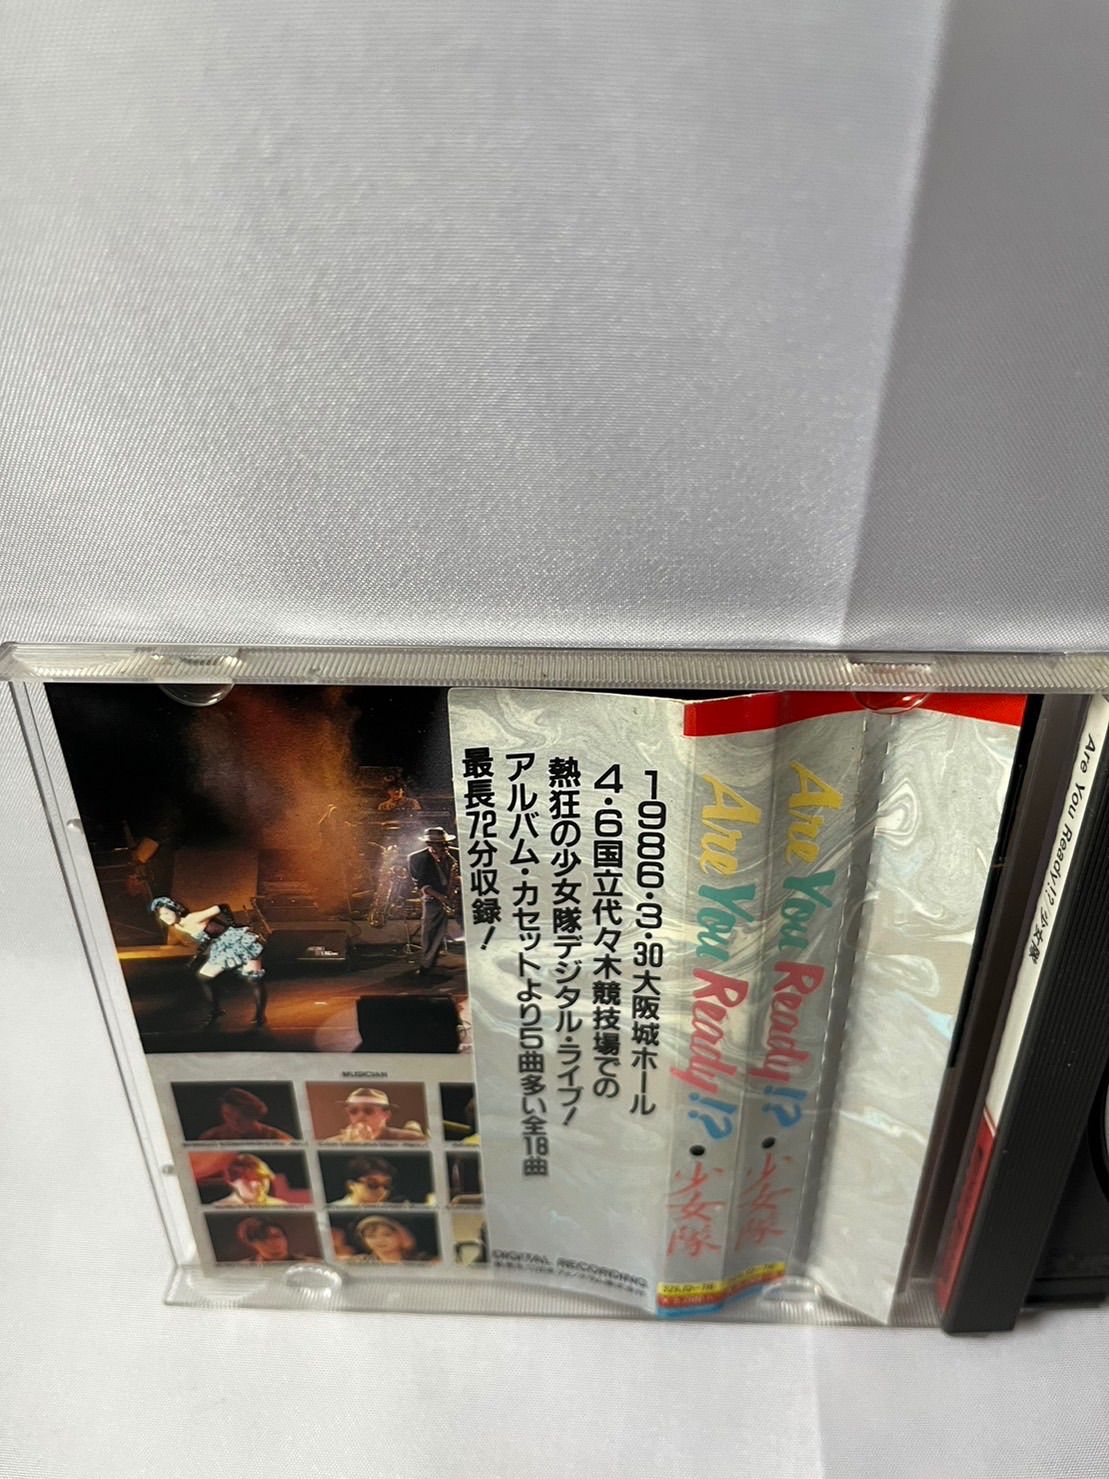 Are You Ready!?・少女隊
Are You Ready!?・少女隊
1986・3・30大阪城ホール
4・6国立代々木競技場での
熱狂の少女隊デジタル・ライブ!
アルバム・カセットより5曲多い全18曲
最長72分収録!
DIGITAL RECORDING
MUSICIAN
Are You Ready!?/少女隊